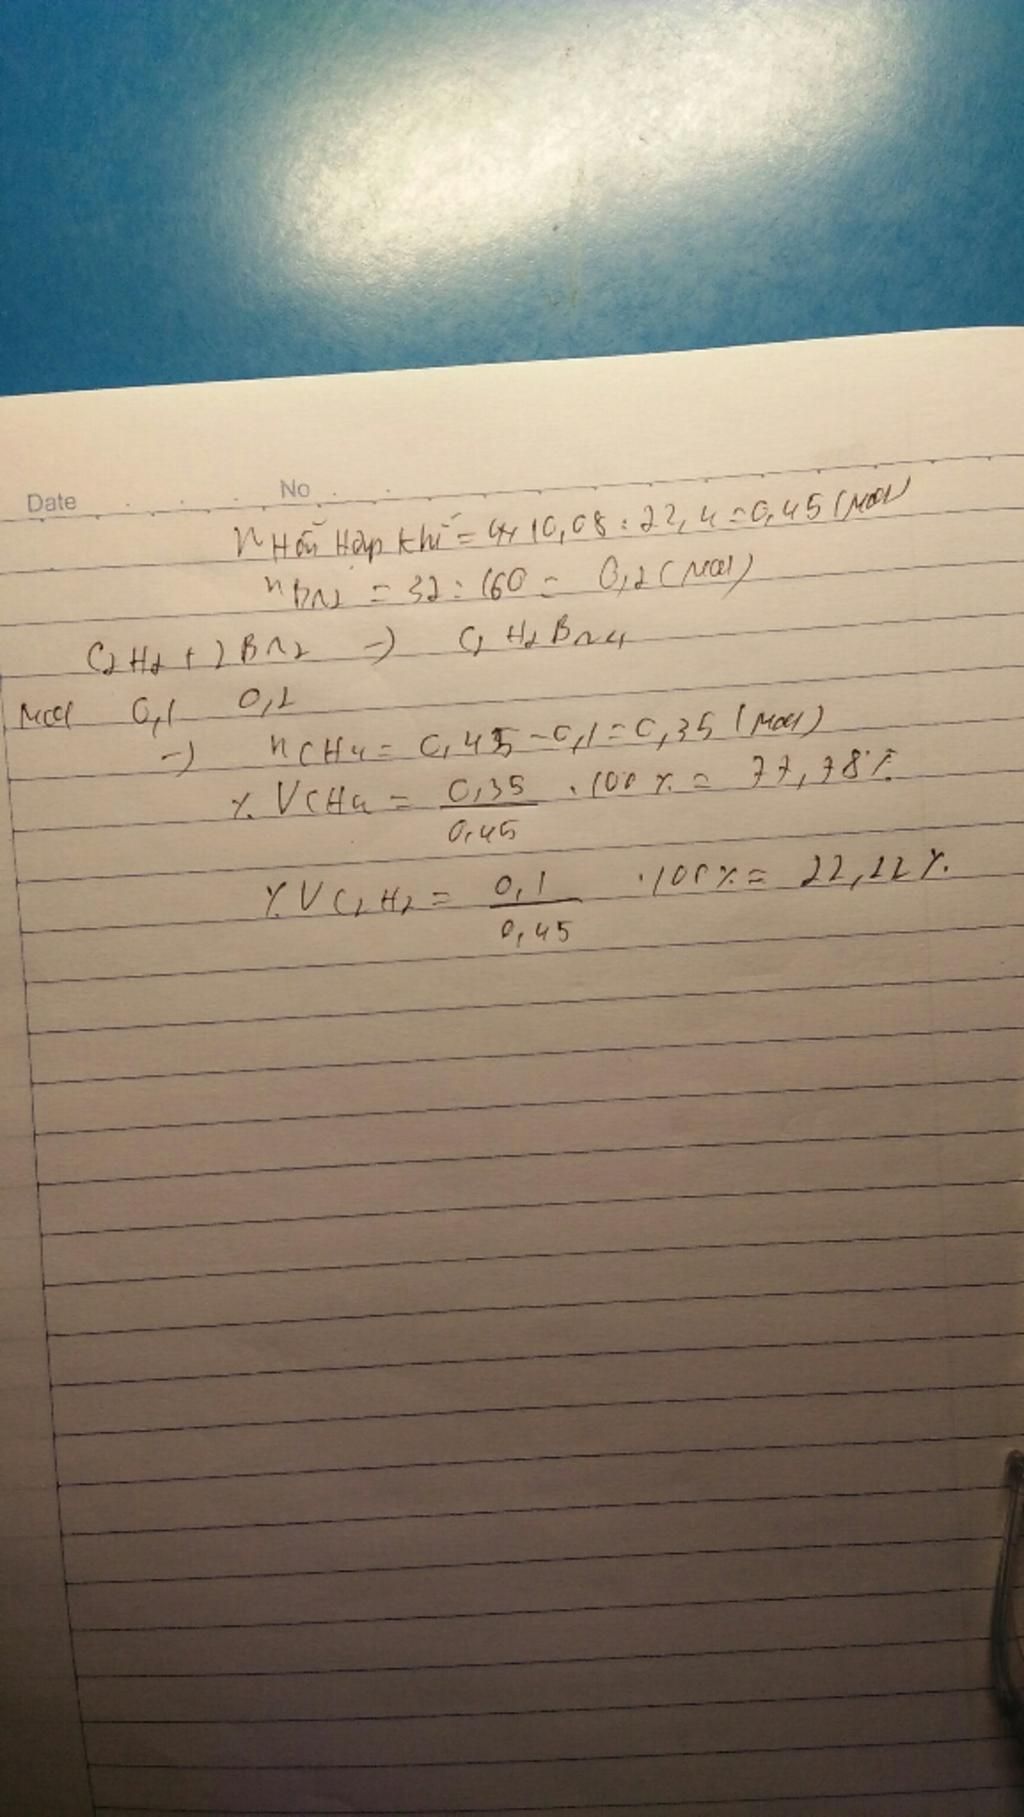 Date No
n Hỗn Hợp khí = 10,08 : 22,4 = 0,45 (mol)
n Br2 = 32 : 160 = 0,2 (mol)
C2H2 + 2Br2 → C2H2Br4
mol 0,1 0,2
→ nCH4 = 0,45 - 0,1 = 0,35 (mol)
% VCH4 = 0,35/0,45 . 100% = 77,78%
% VC2H2 = 0,1/0,45 . 100% = 22,22%.